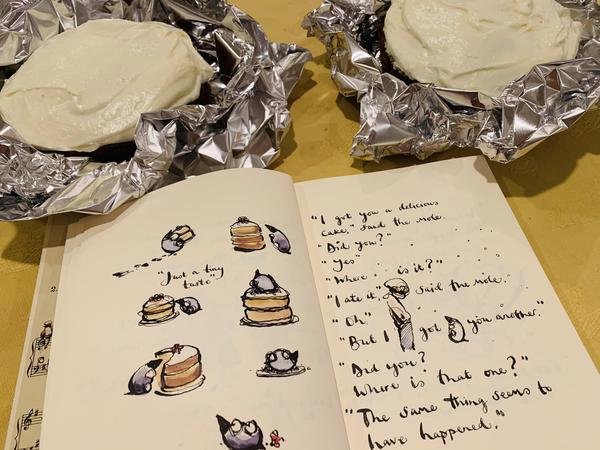 "Just a tiny
taste"
"I got you a delicious
cake," said the mole.
"Did you?"
"Yes"
"Where is it?"
"I ate it," said the mole.
"Oh"
"But I got you another."
"Did you?
Where is that one?"
"The same thing seems to
have happened."
2.